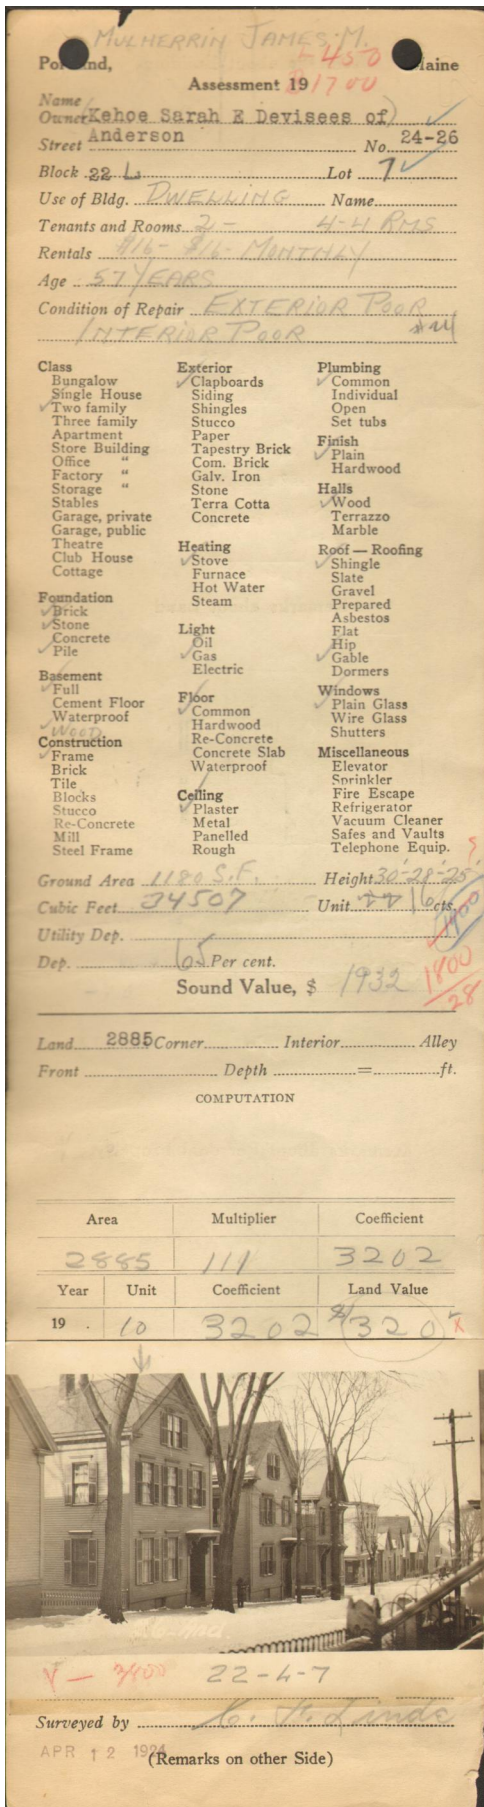 MULHERRIN JAMES. M.
L-450
Portland, Maine
B1700
Assessment 19
Name
Owner (Kehoe Sarah E Devisees of)
Street Anderson No. 24-26
Block 22 L Lot 7
Use of Bldg. DWELLING Name
Tenants and Rooms 2- 4-4 RMS
Rentals $16- $16- MONTHLY
Age 57 YEARS
Condition of Repair EXTERIOR POOR
INTERIOR POOR
Class
Bungalow
Single House
Two family
Three family
Apartment
Store Building
Office "
Factory "
Storage "
Stables
Garage, private
Garage, public
Theatre
Club House
Cottage
Foundation
Brick
Stone
Concrete
Pile
Basement
Full
Cement Floor
Waterproof
WOOD
Construction
Frame
Brick
Tile
Blocks
Stucco
Re-Concrete
Mill
Steel Frame
Exterior
Clapboards
Siding
Shingles
Stucco
Paper
Tapestry Brick
Com. Brick
Galv. Iron
Stone
Terra Cotta
Concrete
Heating
Stove
Furnace
Hot Water
Steam
Light
Oil
Gas
Electric
Floor
Common
Hardwood
Re-Concrete
Concrete Slab
Waterproof
Ceiling
Plaster
Metal
Panelled
Rough
Plumbing
Common
Individual
Open
Set tubs
Finish
Plain
Hardwood
Halls
Wood
Terrazzo
Marble
Roof — Roofing
Shingle
Slate
Gravel
Prepared
Asbestos
Flat
Hip
Gable
Dormers
Windows
Plain Glass
Wire Glass
Shutters
Miscellaneous
Elevator
Sprinkler
Fire Escape
Refrigerator
Vacuum Cleaner
Safes and Vaults
Telephone Equip.
Ground Area 1180 S.F. Height 30'-28'-25'
Cubic Feet 34507 Unit 16 cts.
Utility Dep.
Dep. 65 Per cent.
Sound Value, $ 1932
1800
28
Land 2885 Corner Interior Alley
Front Depth = ft.
COMPUTATION
Area Multiplier Coefficient
2885 111 3202
Year Unit Coefficient Land Value
19 10 3202 $320 x
V - 3400 22-L-7
Surveyed by C. H. Linde
APR 12 1924
(Remarks on other Side)